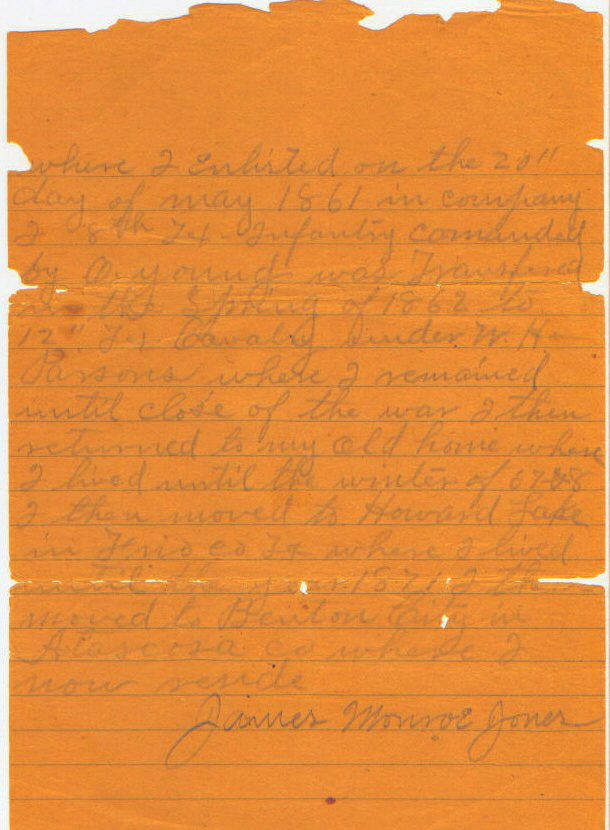 where I Enlisted on the 20"
day of may 1861 in company
I 8th Tex Infantry comanded
by O. Young was Transfered
in the Spring of 1862 to
12" Tex Cavalry under W. H.
Parsons where I remained
until close of the war I then
returned to my old home where
I lived until the winter of 67&8
I then moved to Howard
in Frio co Tx where I lived
until the year 1871 I th
moved to Benton City in
Atascosa co where I
now reside
James Monroe Jones